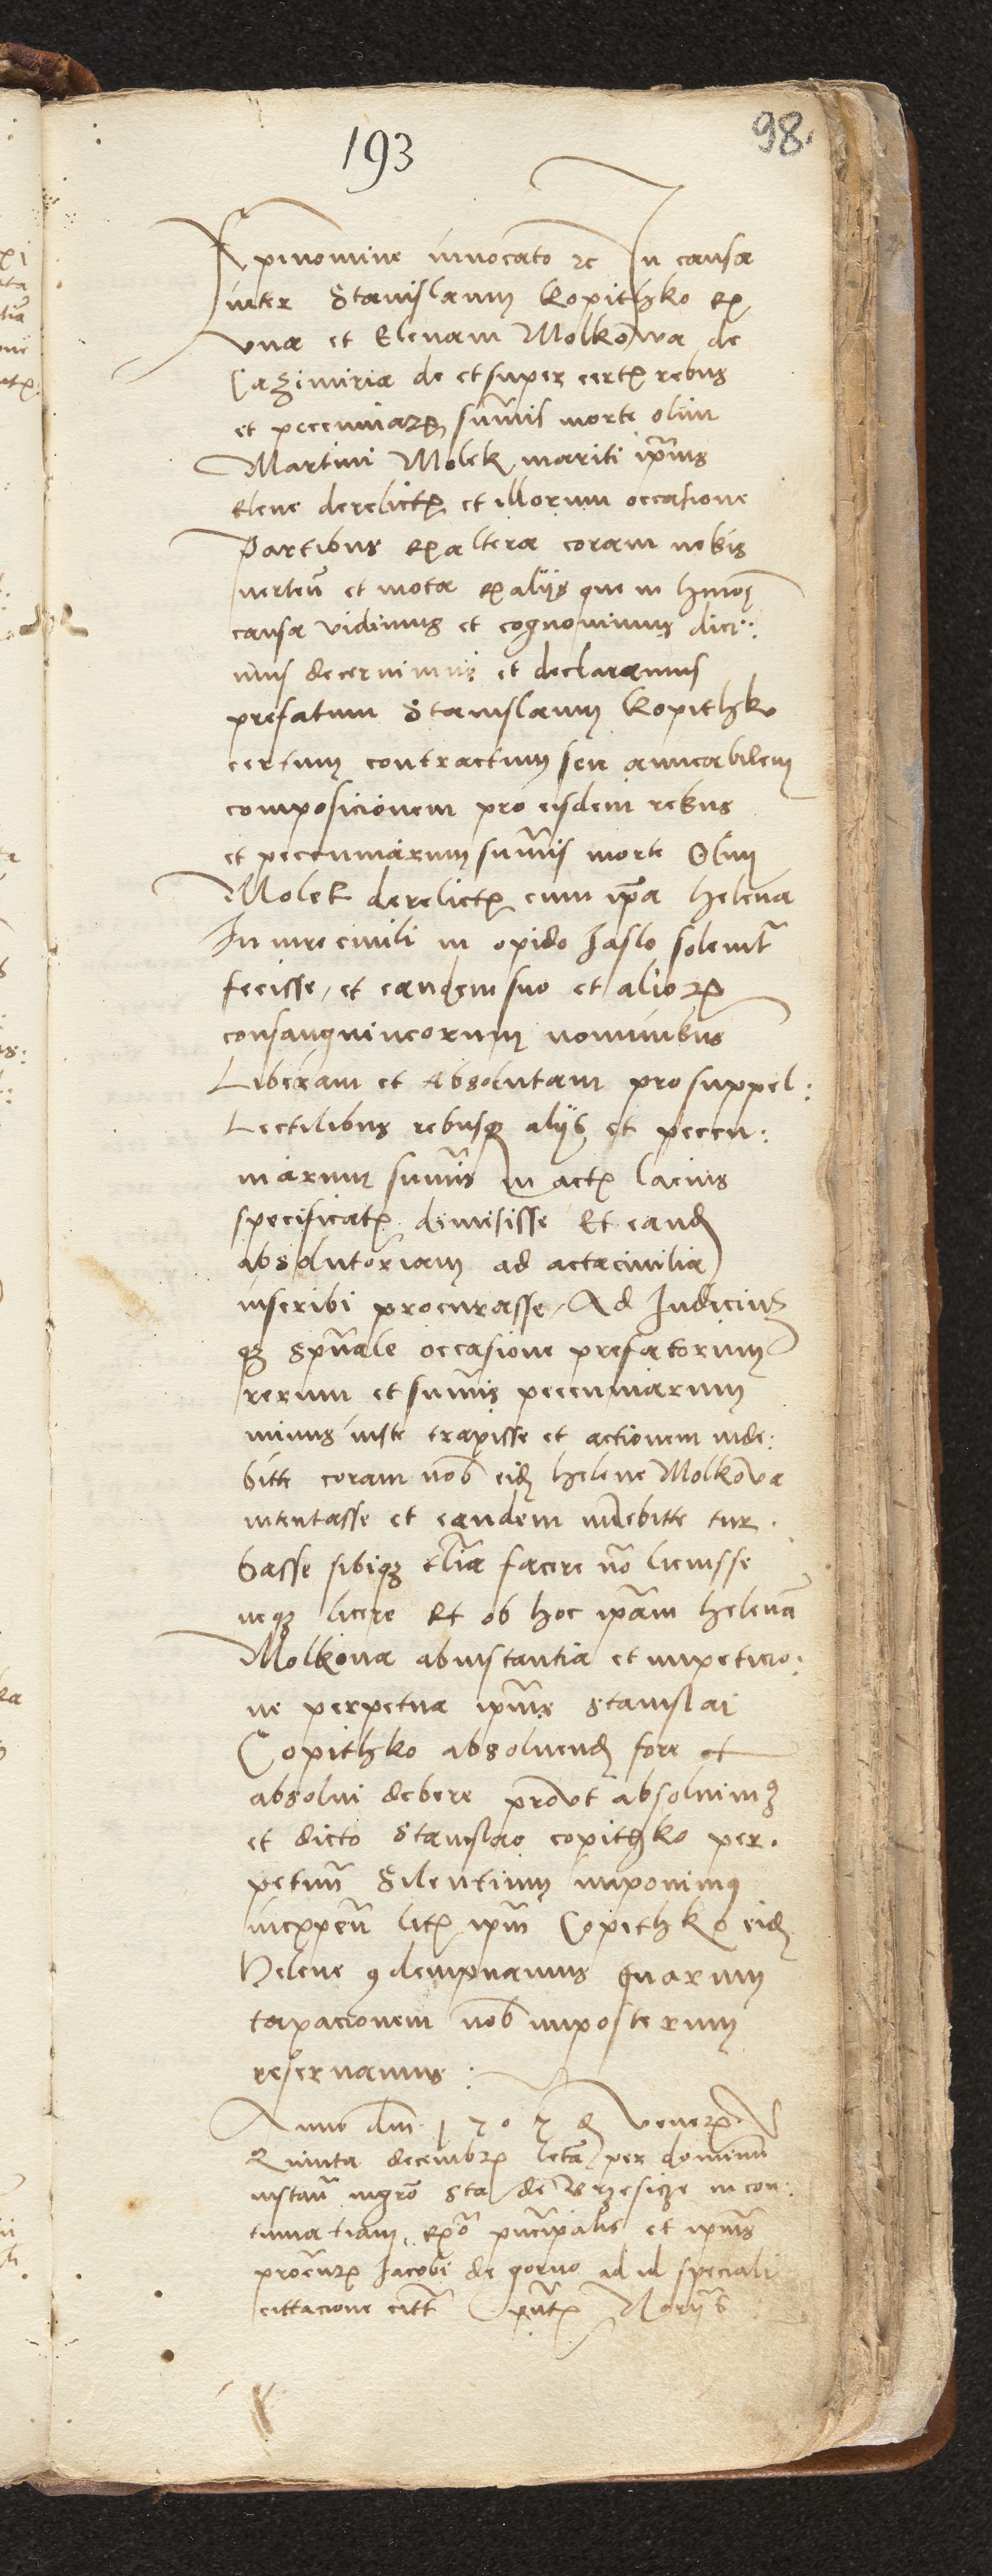 98.
193
Xpi nomine invocato etc In causa
inter Stanislaum Kopithko ex
vna et Elenam Molkowa de
Cazimiria de et super certis rebus
et pecuniarum summis morte olim
Martini Molek mariti ipsius
Elene derelictis et illorum occasione
Partibus ex altera coram nobis
verten et mota ex aliis que in hmoi
causa vidimus et cognovimus dici:
mus decernimus et declaramus
prefatum Stanislaum Kopithko
certum contractum seu amicabilem
composicionem pro eisdem rebus
et pecuniarum summis morte Olim
Molek derelictis cum ipsa Helena
In iure civili in opido Jaslo solemniter
fecisse, et eandem suo et aliorum
consangvineorum nominibus
Liberam et Absolutam pro suppel:
Lectilibus rebusque aliis et pecu:
niarum summis In actis lacius
specificatis dimisisse Et eandem
absolutoriam ad acta civilia
inscribi procurasse, Ad Judicium
que spirituale occasione prefatorum
rerum et summis pecuniarum
minus iuste traxisse et actionem inde:
bitte coram nobis eidem Helene Molkowa
intentasse et eandem indebitte tur.
basse sibique talia facere non licuisse
neque licere Et ob hoc ipsam Helenam
Molkowa ab instantia et impeticio:
ne perpetua ipsius Stanislai
Copithko absoluendam fore et
absolui debere prout absoluimus
et dicto Stanislao Copithko per.
petuum Silentium imponimus
in expensis litis ipsum Copithko eidem
Helene condempnamus quarum
taxacionem nobis imposterum
reservamus:
Anno domini 1507 d veneris
Quinta decembris lecta per dominum
instan magistro Sta de Brzesicze in con:
tumatiam ex aduerso principalis et ipsius
procuratoris Jacobi de gorno ad id speciali
cittacione citt Presentibus Notariis